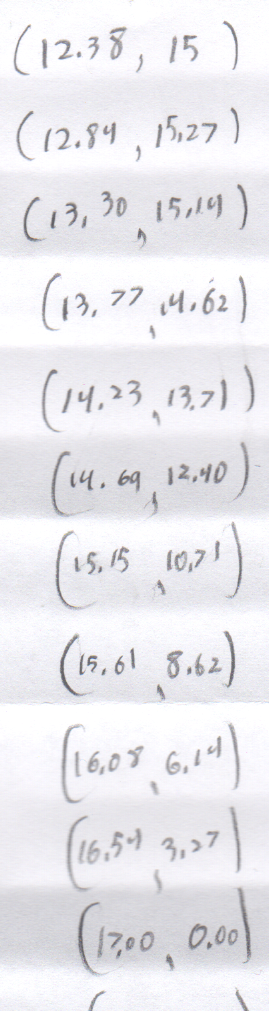 (12.38, 15)
(12.84, 15.27)
(13.30, 15.14)
(13.77, 14.62)
(14.23, 13.71)
(14.69, 12.40)
(15.15, 10.71)
(15.61, 8.62)
(16.08, 6.14)
(16.54, 3.27)
(17.00, 0.00)